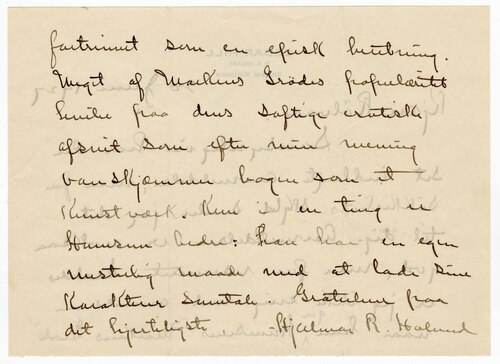 fortrinnet som en episk
Meget af Markens Grødes popularitet
paa dens saftige erotiske
afsnit som efter min mening
vanskjæmmer bogen som et
Kunstværk. Kun i en ting er
Hamsun bedre: Han har en egen
maade med at lade sine
Karakterer Samtale. Gratulerer paa
det hjerteligste -Hjalmar R. Holand